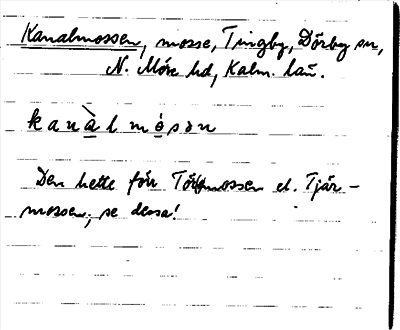 Kanalmossen, mosse, Tingby, Dörby sn,
N. Möre hd, Kalm. län.
kanàlmósən
Den hette förr Törfmossen el. Tjär-
mossen; se dessa!